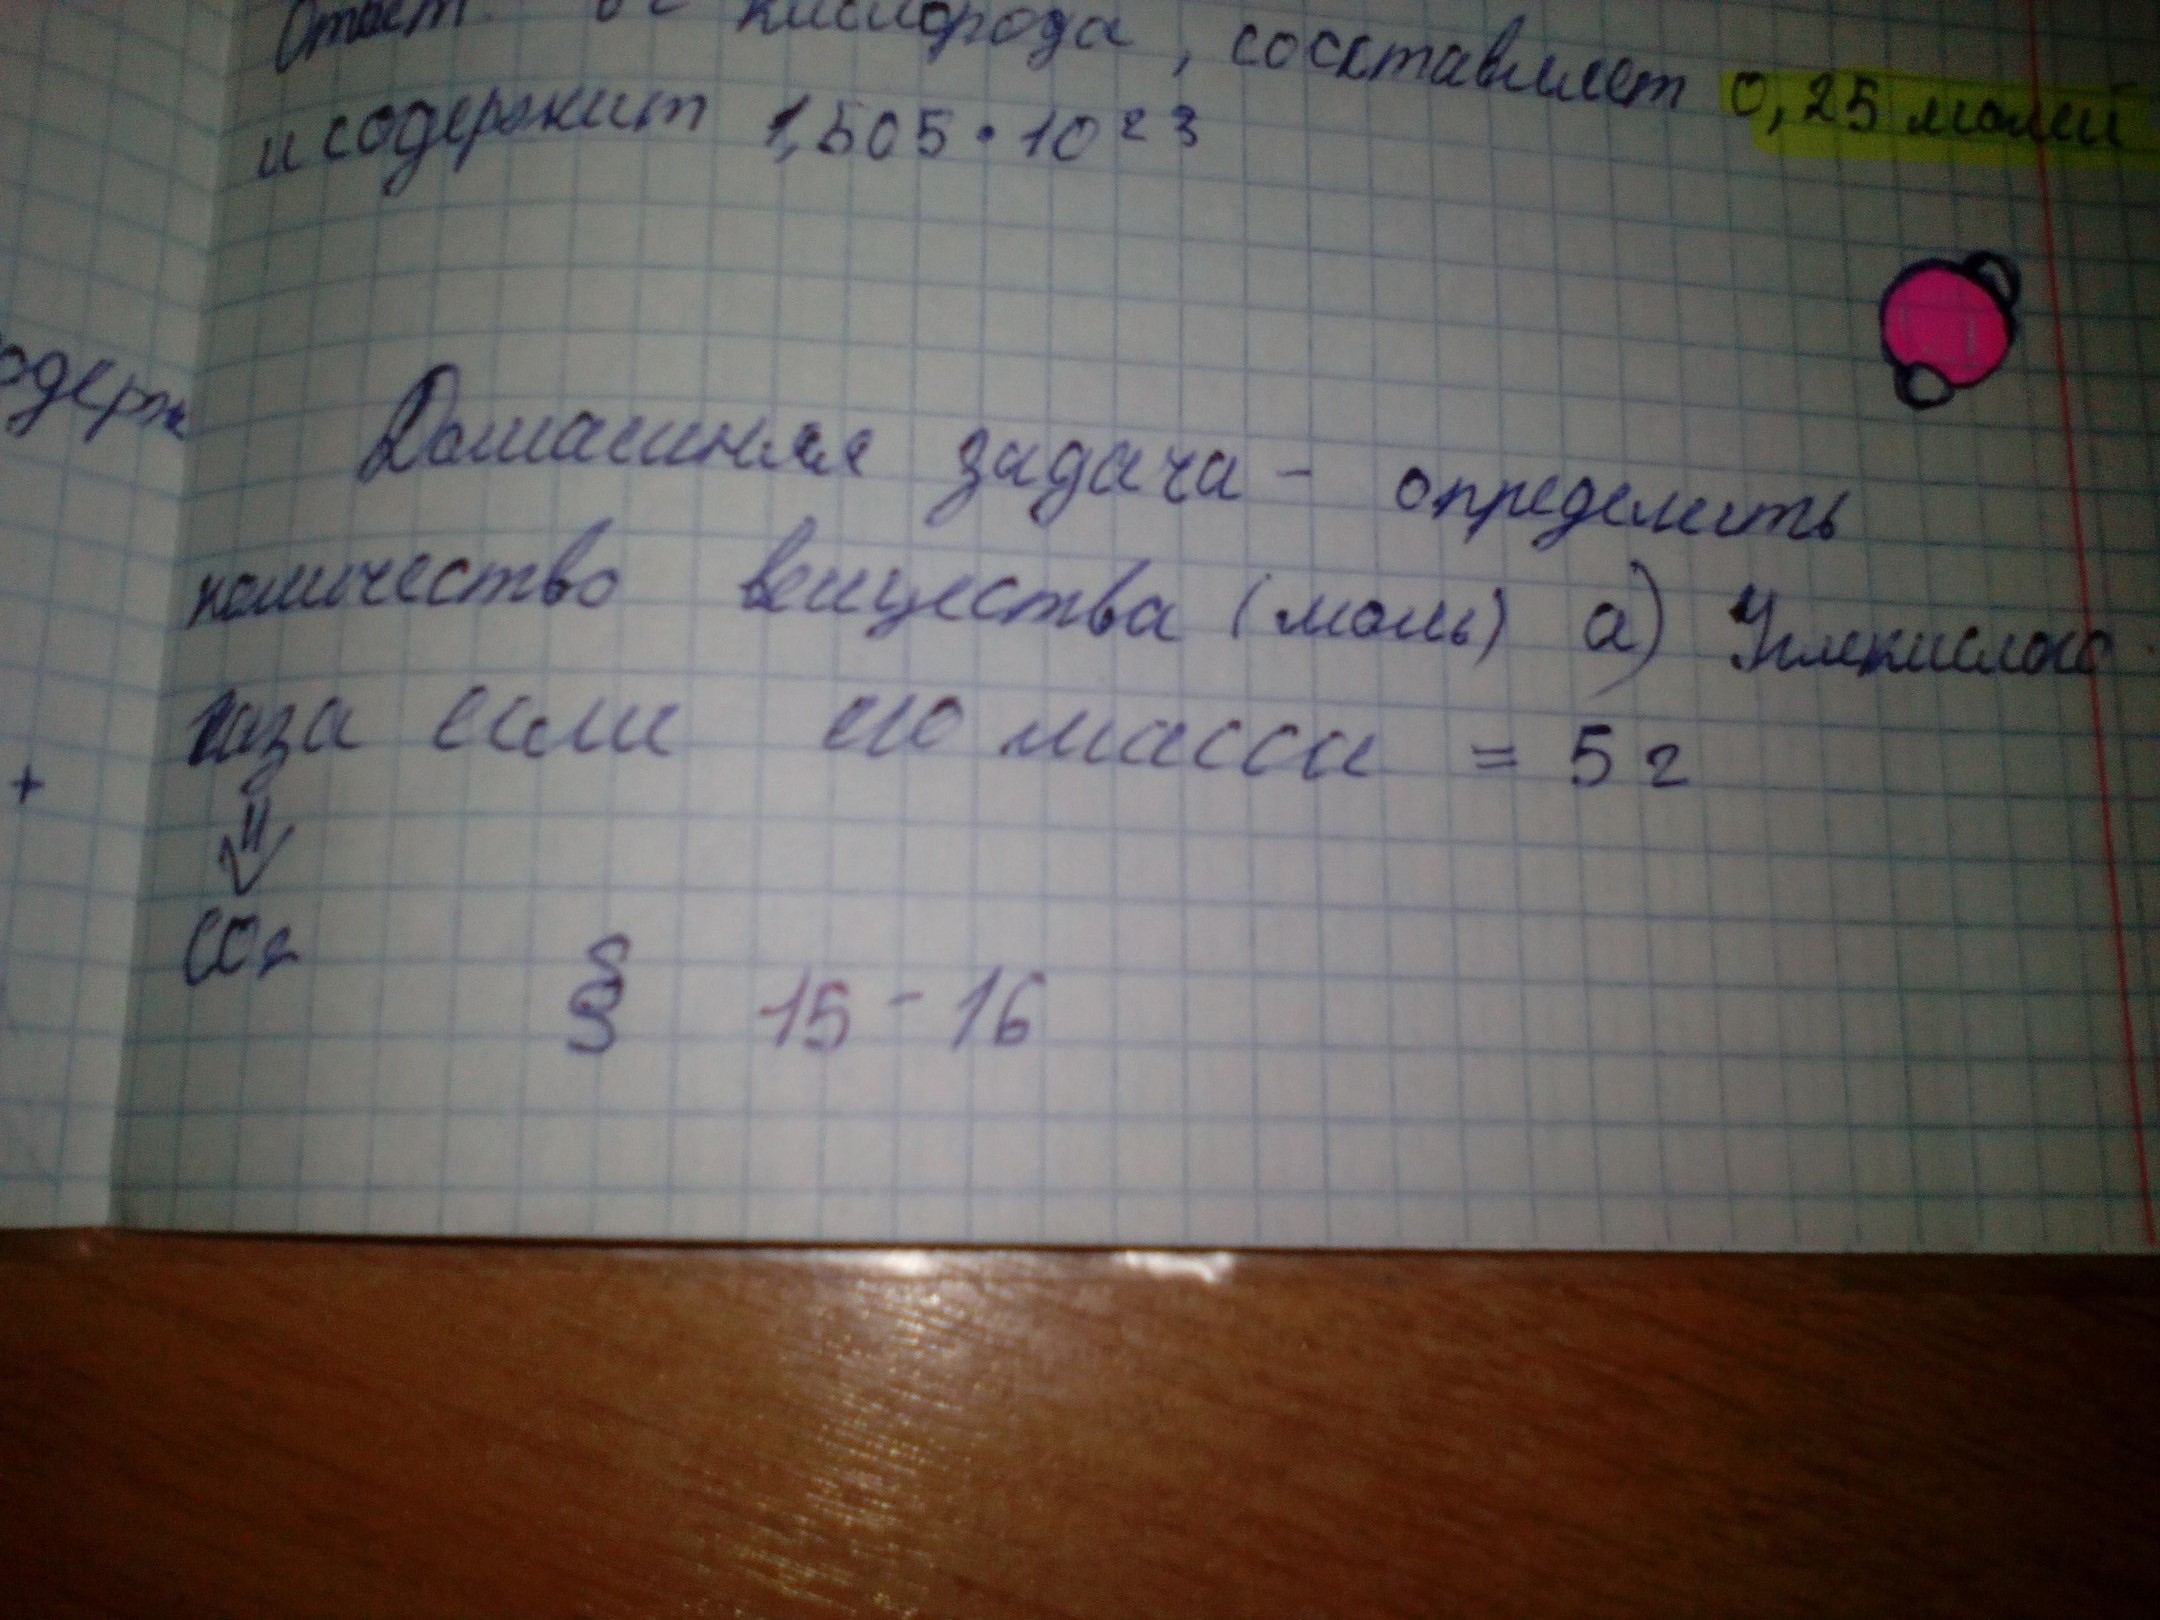 Ответ 8г кислорода, сосктавляет 0,25 молей
и содержит 1,505·10²³
одерж
Домашняя задача - определить
количество вещества (моль) а) Углекислого
газа если его масса = 5 г
+
⇓
CO₂
§ 15-16